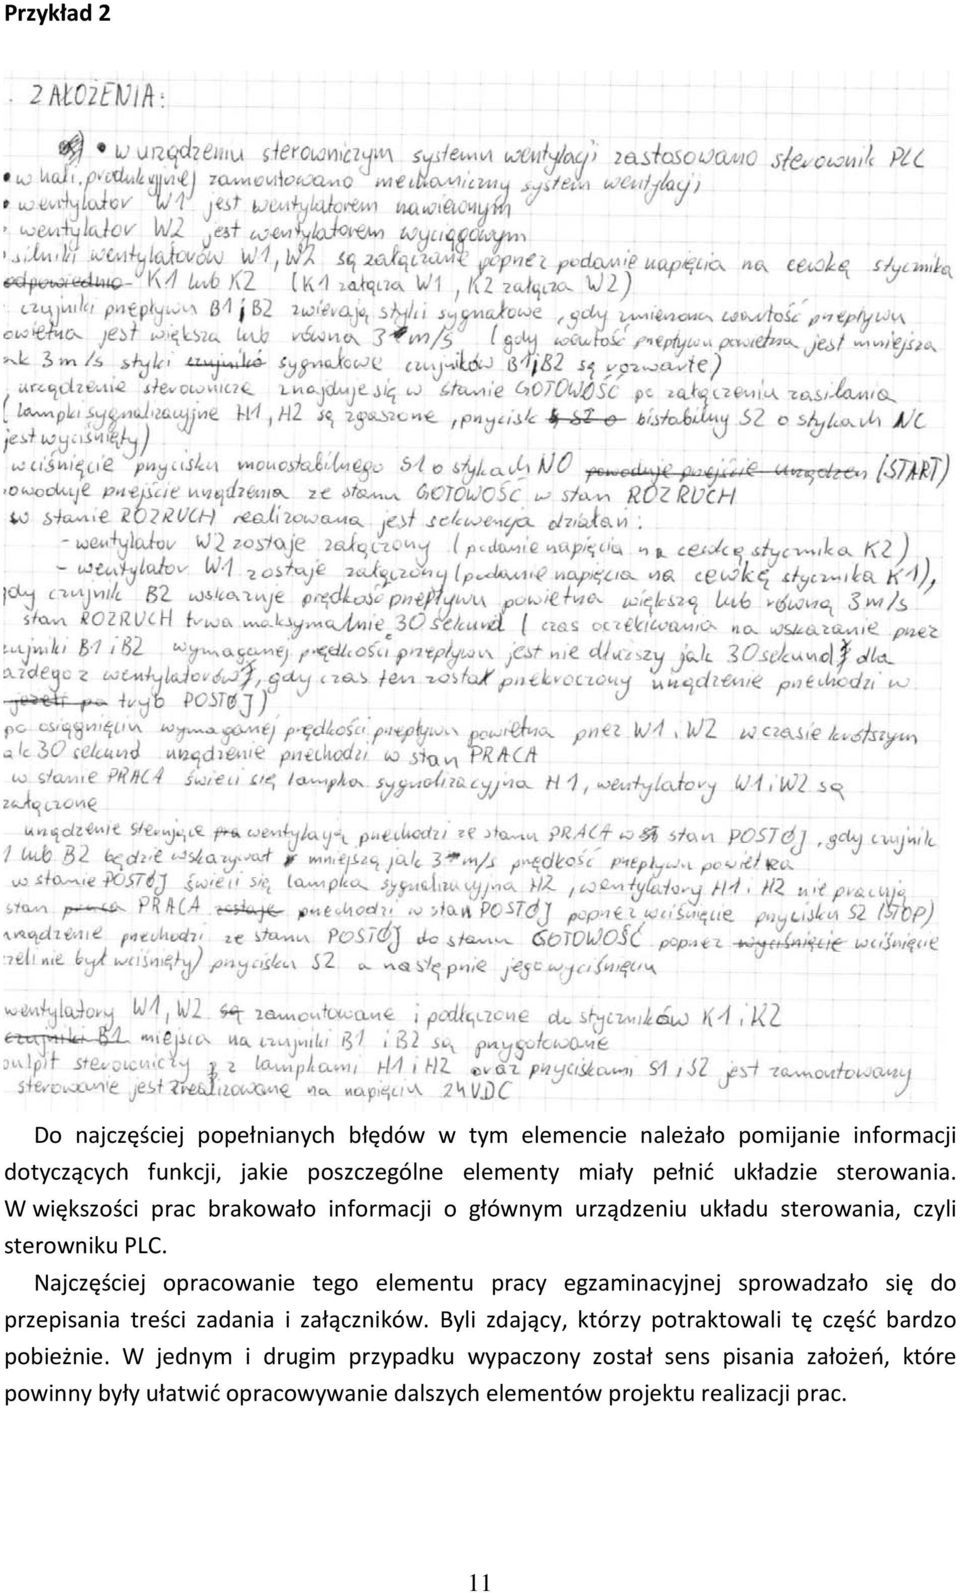 Przykład 2
ZAŁOŻENIA:
• w urządzeniu sterowniczym systemu wentylacji zastosowano sterownik PLC
• w hali produkcyjnej zamontowano mechaniczny system wentylacji
• wentylator W1 jest wentylatorem nawiewnym
• wentylator W2 jest wentylatorem wyciągowym
silniki wentylatorów W1, W2 są załączane poprzez podanie napięcia na cewkę stycznika
odpowiednio K1 lub K2 (K1 załącza W1, K2 załącza W2)
czujniki przepływu B1 i B2 zwierają styki sygnałowe, gdy zmierzona wartość przepływu
owietrza jest większa lub równa 3 m/s (gdy wartość przepływu powietrza jest mniejsza
ak 3 m/s styki czujników sygnałowe czujników B1 i B2 są rozwarte)
urządzenie sterownicze znajduje się w stanie GOTOWOŚĆ po załączeniu zasilania
(lampki sygnalizacyjne H1, H2 są zgaszone, przycisk S2 o bistabilny S2 o stykach NC
jest wyciśnięty)
wciśnięcie przycisku monostabilnego S1 o stykach NO powoduje przejście urządzen (START)
owoduje przejście urządzenia ze stanu GOTOWOŚĆ w stan ROZRUCH
w stanie ROZRUCH realizowana jest sekwencja działań:
- wentylator W2 zostaje załączony (podanie napięcia na cewkę stycznika K2)
- wentylator W1 zostaje załączony (podanie napięcia na cewkę stycznika K1),
gdy czujnik B2 wskazuje prędkość przepływu powietrza większą lub równą 3 m/s
stan ROZRUCH trwa maksymalnie 30 sekund (czas oczekiwania na wskazanie przez
czujniki B1 i B2 wymaganej prędkości przepływu jest nie dłuższy jak 30 sekund dla
ażdego z wentylatorów), gdy czas ten został przekroczony urządzenie przechodzi w
jeżeli po tryb POSTÓJ)
po osiągnięciu wymaganej prędkości przepływu powietrza przez W1 i W2 w czasie krótszym
ak 30 sekund urządzenie przechodzi w stan PRACA
w stanie PRACA świeci się lampka sygnalizacyjna H1, wentylatory W1 i W2 są
załączone
urządzenie sterujące pra wentylacją przechodzi ze stanu PRACA w stan POSTÓJ, gdy czujnik
1 lub B2 będzie wskazywał mniejszą jak 3 m/s prędkość przepływu powietrza
w stanie POSTÓJ świeci się lampka sygnalizacyjna H2, wentylatory H1 i H2 nie pracują
stan praca PRACA zostaje przechodzi w stan POSTÓJ poprzez wciśnięcie przycisku S2 (STOP)
urządzenie przechodzi ze stanu POSTÓJ do stanu GOTOWOŚĆ poprzez wyciśnięcie wciśnięcie
żeli nie był wciśnięty) przycisku S2 a następnie jego wyciśnięciu
wentylatory W1, W2 są zamontowane i podłączone do styczników K1 i K2
czujniki B1 miejsca na czujniki B1 i B2 są przygotowane
pulpit sterowniczy z lampkami H1 i H2 oraz przyciskami S1 i S2 jest zamontowany
sterowanie jest zrealizowane na napięciu 24V DC
Do najczęściej popełnianych błędów w tym elemencie należało pomijanie informacji
dotyczących funkcji, jakie poszczególne elementy miały pełnić układzie sterowania.
W większości prac brakowało informacji o głównym urządzeniu układu sterowania, czyli
sterowniku PLC.
Najczęściej opracowanie tego elementu pracy egzaminacyjnej sprowadzało się do
przepisania treści zadania i załączników. Byli zdający, którzy potraktowali tę część bardzo
pobieżnie. W jednym i drugim przypadku wypaczony został sens pisania założeń, które
powinny były ułatwić opracowywanie dalszych elementów projektu realizacji prac.
11